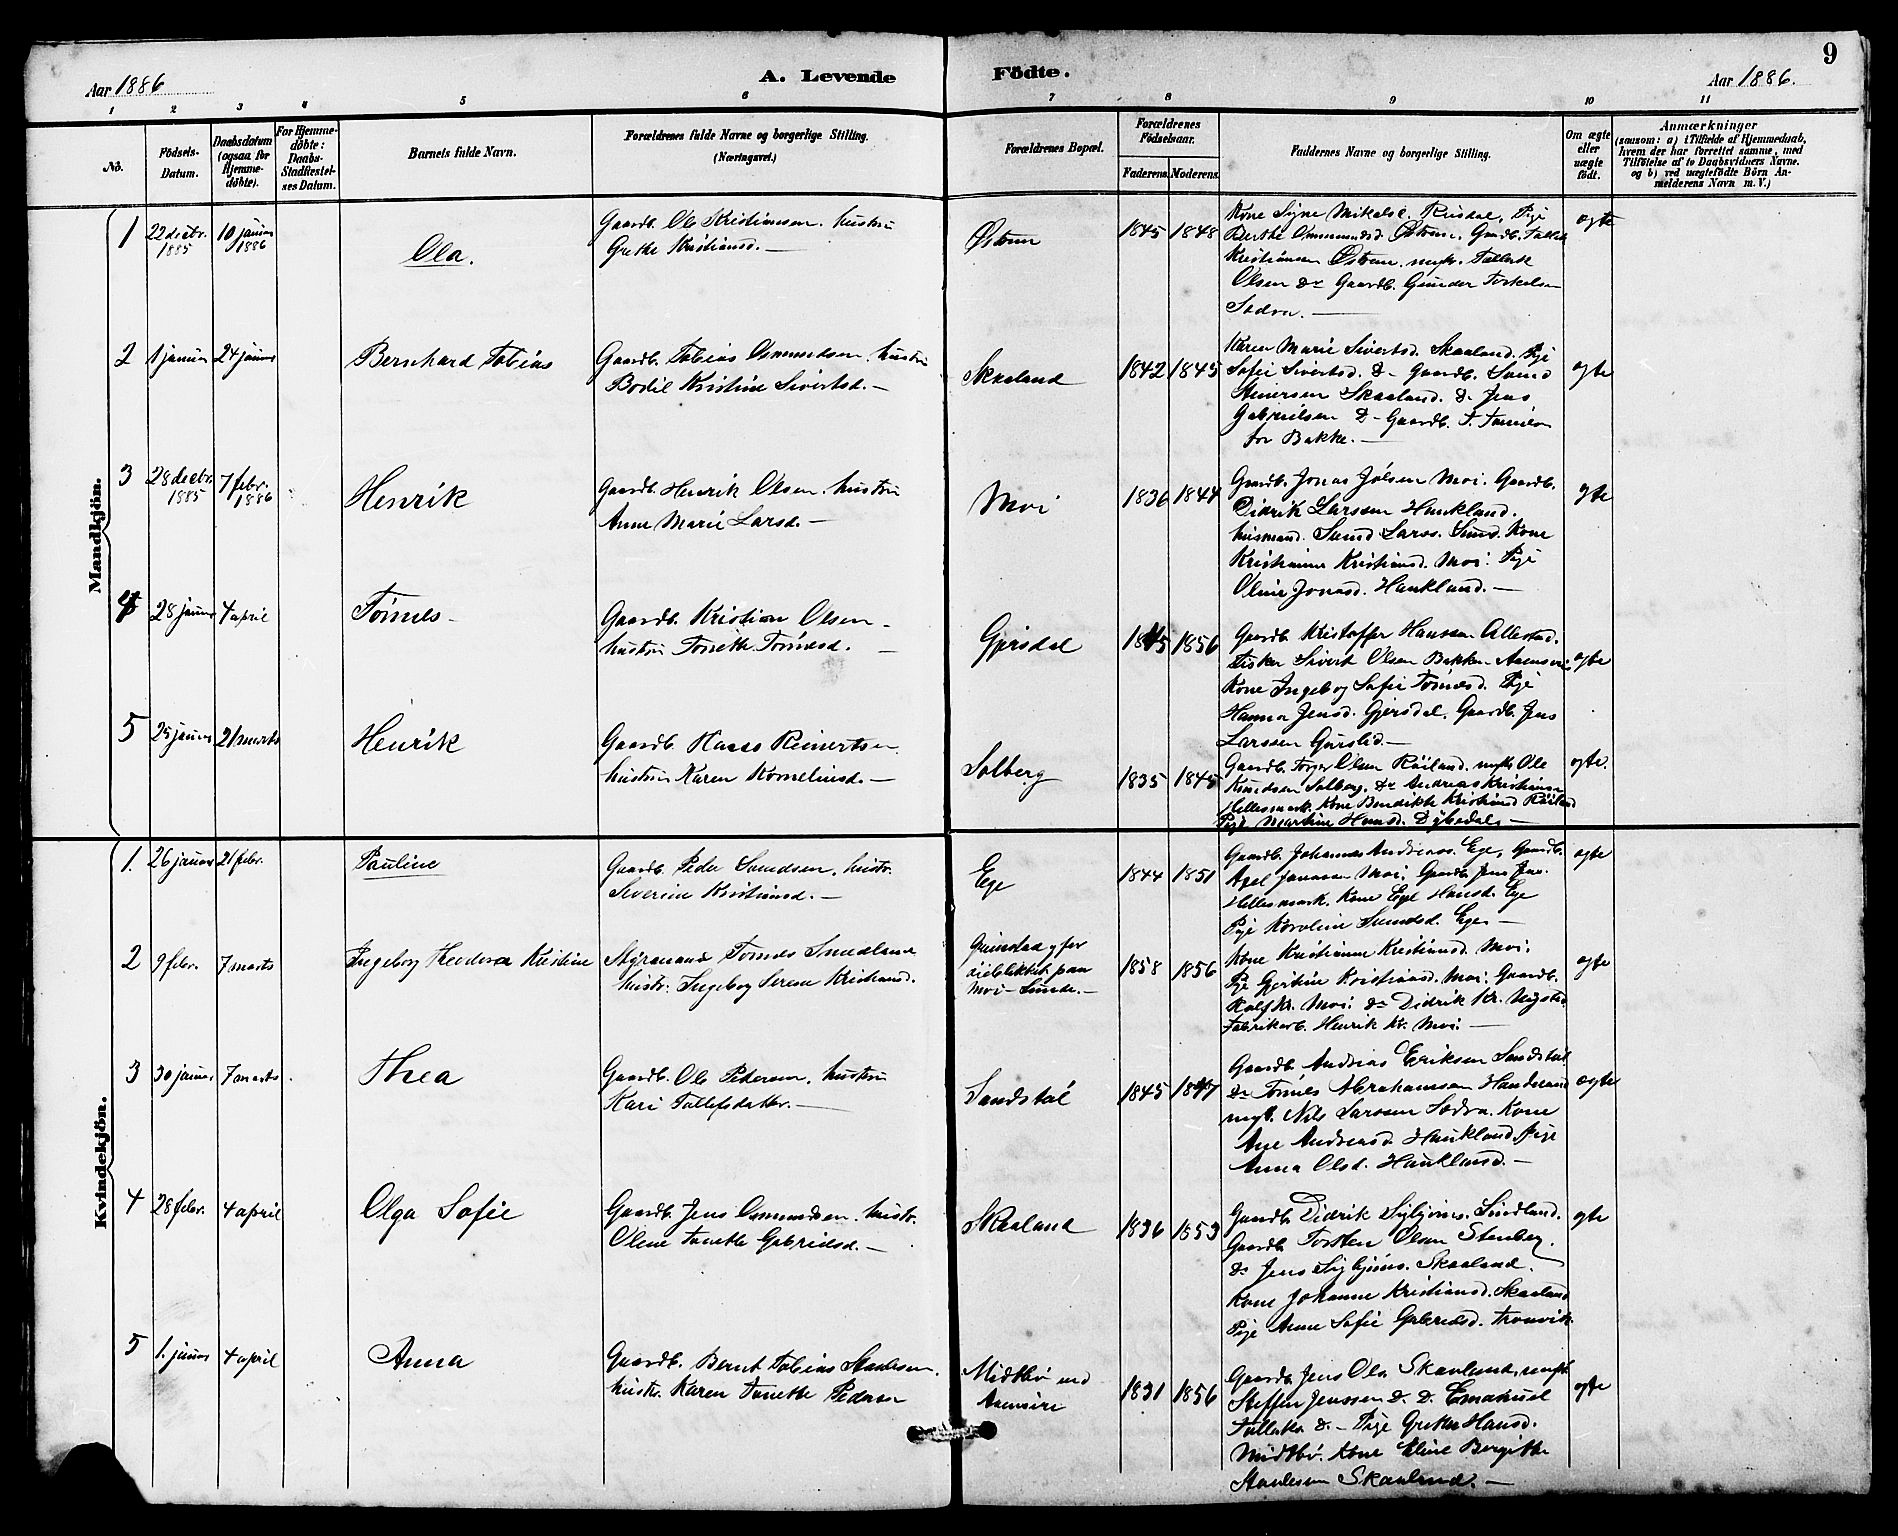 9
Aar 1886
A. Levende Födte.
Aar 1886.
1 2 3 4 5 6 7 8 9 10 11
No.
Födsels-Datum.
Daabsdatum (ogsaa for Hjemmedöbte).
For Hjemmedöbte: Daabs-Stadfæstelses Datum.
Barnets fulde Navn.
Forældrenes fulde Navne og borgerlige Stilling. (Næringsvei.)
Forældrenes Bopæl.
Forældrenes Födselsaar.
Faderens. Moderens.
Faddernes Navne og borgerlige Stilling.
Om ægte eller uægte födt.
Anmærkninger
(saasom: a) i Tilfælde af Hjemmedaab, hvem der har forrettet samme, med Tilföielse af to Daabsvidners Navne. og b) ved uægtefödte Börn Anmelderens Navn m. V.)
Mandkjön.
1 22 decbr. 1885 10 januar 1886
Ola.
Gaardb. Ole Kristiansen. hustru
Grethe Kristiansd. —
1845 1848
Kone Signe Mikalsd. Risdal, Pige
Berthe Ommundsd. Østrem. Gaardb. Tallak
Kristiansen Østrem. ungk. Tallak
Olsen do Gaardb. Gunder Torkelsen
Sædra. —
ægte
2 1 januar 24 januar
Bernhard Tobias
Gaardb. Tobias Osmundsen. hustru
Bodil Kristine Sivertsd. —
Skaaland
1842 1845
Karen Marie Sivertsd. Skaaland. Pige
Sofie Sivertsd. do Gaardb. Svend
Skaaland. do Jens
Gabrielsen do — Gaardb. T.
Bakke. —
ægte
3 28 decbr. 1885 7 febr. 1886
Henrik
Gaardb. Henrik Olsen. hustru
Anne Marie Larsd. —
Moi
1836 1844
Gaardb. Jonas Joelsen Moi. Gaardb.
Didrik Larssen Haukland.
husmand. Svend Lars. Sunde. Kone
Kristianne Kristiansd. Moi. Pige
Oline Jonasd. Haukland. —
ægte
4 28 januar 4 april
Tönnes —
Gaardb. Kristian Olsen —
hustru Tonette Tönnesd. —
Gjersdal
1845 1856
Gaardb. Kristoffer Hanssen Allestad.
Fisker Sivert Olsen Bakken Aaensire
Kone Ingeborg Sofie Tönnesd. Pige
Hanna Jensd. Gjersdal. Gaardb. Jens
Larssen
ægte
5 25 januar 21 marts
Henrik
Gaardb. Hans Reinertsen
hustru Karen Korneliusd. —
Solberg
1835 1845
Gaardb. Torger Olsen Röiland. ungk. Ole
Knudsen Solberg. do Andreas Kristiansen
Hellesmark. Kone Bendikte Kristiansd. Röiland
Pige Martine Hansd. Dybedal. —
ægte.
Kvindekjön.
1. 26 januar 21 febr.
Pauline
Gaardb. Peder Svendsen. hustr.
Severine Kristiansd. —
Ege
1844 1851
Gaardb. Johannes Andreass. Ege. Gaardb.
Axel Janssen Moi. Gaardb. Jens Jens.
Hellesmark. Kone Hansd. Ege
Pige Karoline Svendsd. Ege —
ægte
2 9 febr. 7 marts
Ingeborg Theodora Kristine
Styrmand Tönnes Smedland
hustr. Ingeborg Serene Kristiansd.
Grimstad og for
öieblikket paa
Moi — Sunde. —
1858 1856
Kone Kristianne Kristiansd. Moi.
Pige Gjertine Kristiansd. Moi. Gaardb.
Rolf Kr. Moi. do Didrik Kr.
Fabrikarb. Henrik Kr. Moi. —
ægte
3 30 januar 7 marts
Thea
Gaardb. Ole Pedersen. hustru
Kari Tallefsdatter. —
Sandstöl
1845 1847
Gaardb. Andreas Eriksen Sandstöl
do Tönnes Abrahamsen Handeland
ungk. Nils Larssen Sædra. Kone
Ane Andreasd. Haukland. Pige
Anna Olsd. Haukland. —
ægte
4 28 febr. 4 april
Olga Sofie
Gaardb. Jens Osmundsen. hustr.
Olene Tonette Gabrielsd. —
Skaaland
1836 1853
Gaardb. Didrik Sigbjörns. Sindland.
Gaardb. Torsten Olsen Stenberg.
do Jens Sigbjörns. Skaaland.
Kone Johanne Kristiansd. Skaaland
Pige Anne Sofie Gabrielsd. Tronvik.
ægte
5 1. januar 4 april
Anna
Gaardb. Bernt Tobias Staalesen.
hustr. Karen Tonette Pedersen
Midtbö ved
Aaensire
1831 1856
Gaardb. Jens Ols. Skaaland, ungk.
Steffen Jenssen do. do. Emanuel
Tallaks. do — Pige Grethe Hansd.
Midtbö. Kone Eline Bergitte
Staalesen Skaaland. —
ægte